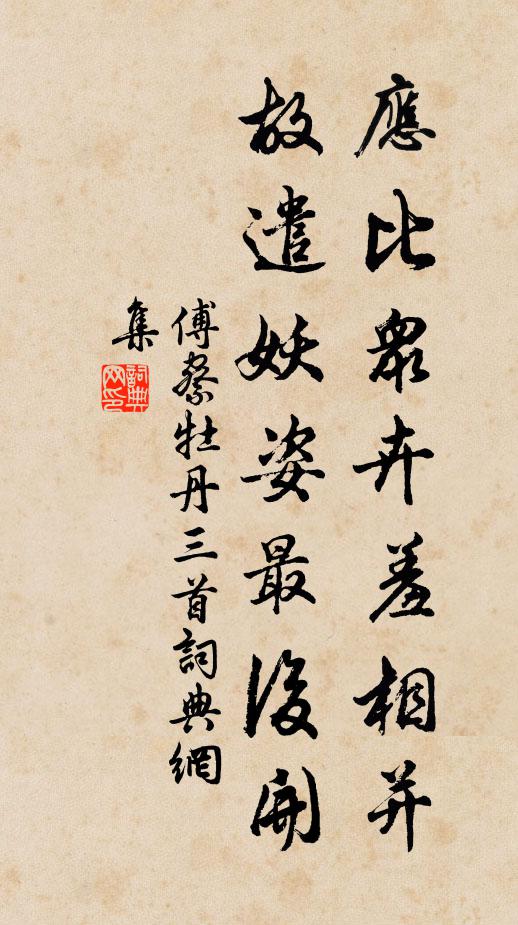 應比眾卉羞相並
故遣妖姿最後開
傅察牡丹三首詞典網
集
詞典
网印